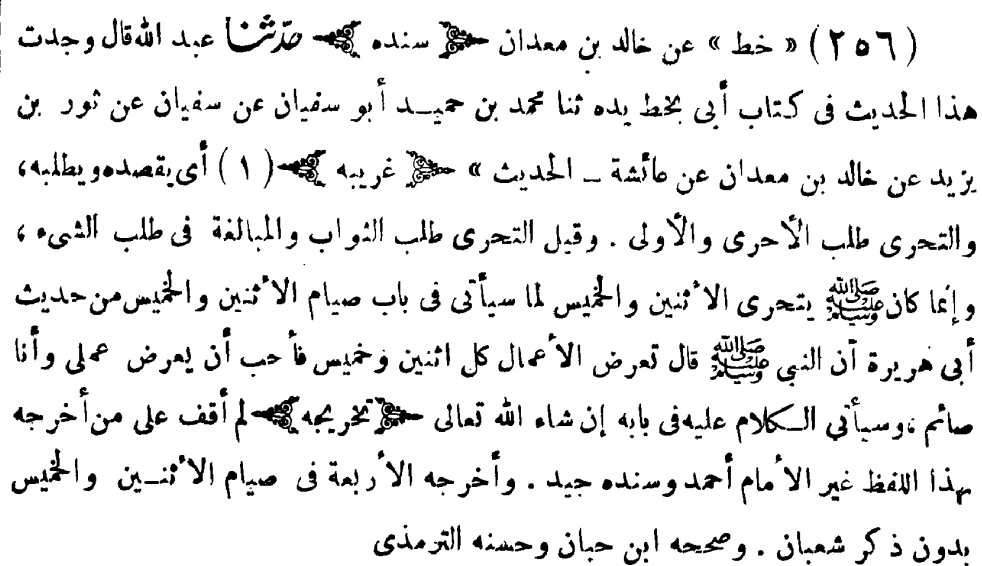 (٢٥٦) « خط » عن خالد بن معدان ﴿ سنده ﴾ حدّثنا عبد الله قال وجدت
هذا الحديث فى كتاب أبى بخط يده ثنا محمد بن حميد أبو سفيان عن سفيان عن ثور بن
يزيد عن خالد بن معدان عن عائشة – الحديث » ﴿ غريبه ﴾ (١) أى يقصده ويطلبه،
والتحرى طلب الأحرى والأولى . وقيل التحرى طلب الثواب والمبالغة فى طلب الشىء ،
وإنما كان ﷺ يتحرى الأثنين والخميس لما سيأتى فى باب صيام الأثنين والخميس من حديث
أبى هريرة أن النبى ﷺ قال تعرض الأعمال كل اثنين وخميس فأحب أن يعرض عملى وأنا
صائم ،وسيأتي الكلام عليه فى بابه إن شاء الله تعالى ﴿ تخريجه ﴾ لم أقف على من أخرجه
بهذا اللفظ غير الأمام أحمد وسنده جيد . وأخرجه الأربعة فى صيام الأثنين والخميس
بدون ذكر شعبان . وصححه ابن حبان وحسنه الترمذى